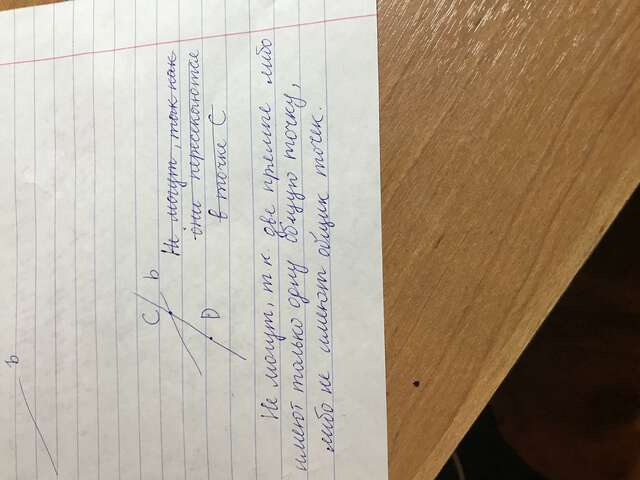 b
C
b
D
Не могут, так как
они пересекаются
в точке C
Не могут, т к. две прямые либо
имеют только одну общую точку,
либо не имеют общих точек.